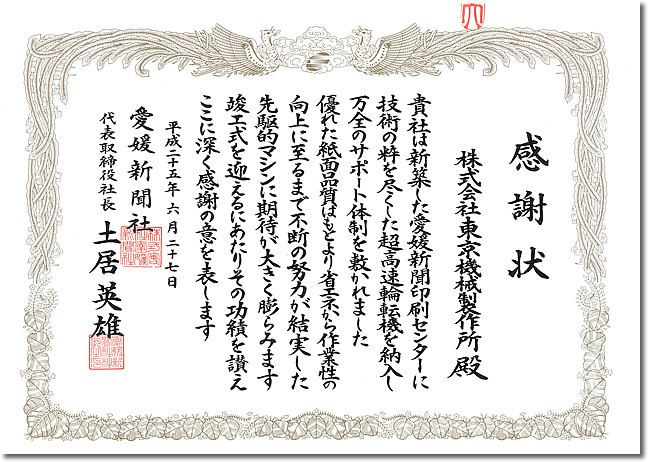 感謝状
株式会社東京機械製作所 殿
貴社は新築した愛媛新聞印刷センターに
技術の粋を尽くした超高速輪転機を納入し
万全のサポート体制を敷かれました
優れた紙面品質はもとより省エネから作業性の
向上に至るまで不断の努力が結実した
先駆的マシンに期待が大きく膨らみます
竣工式を迎えるにあたりその功績を讃え
ここに深く感謝の意を表します
平成二十五年六月二十七日
愛媛新聞社
代表取締役社長 土居英雄